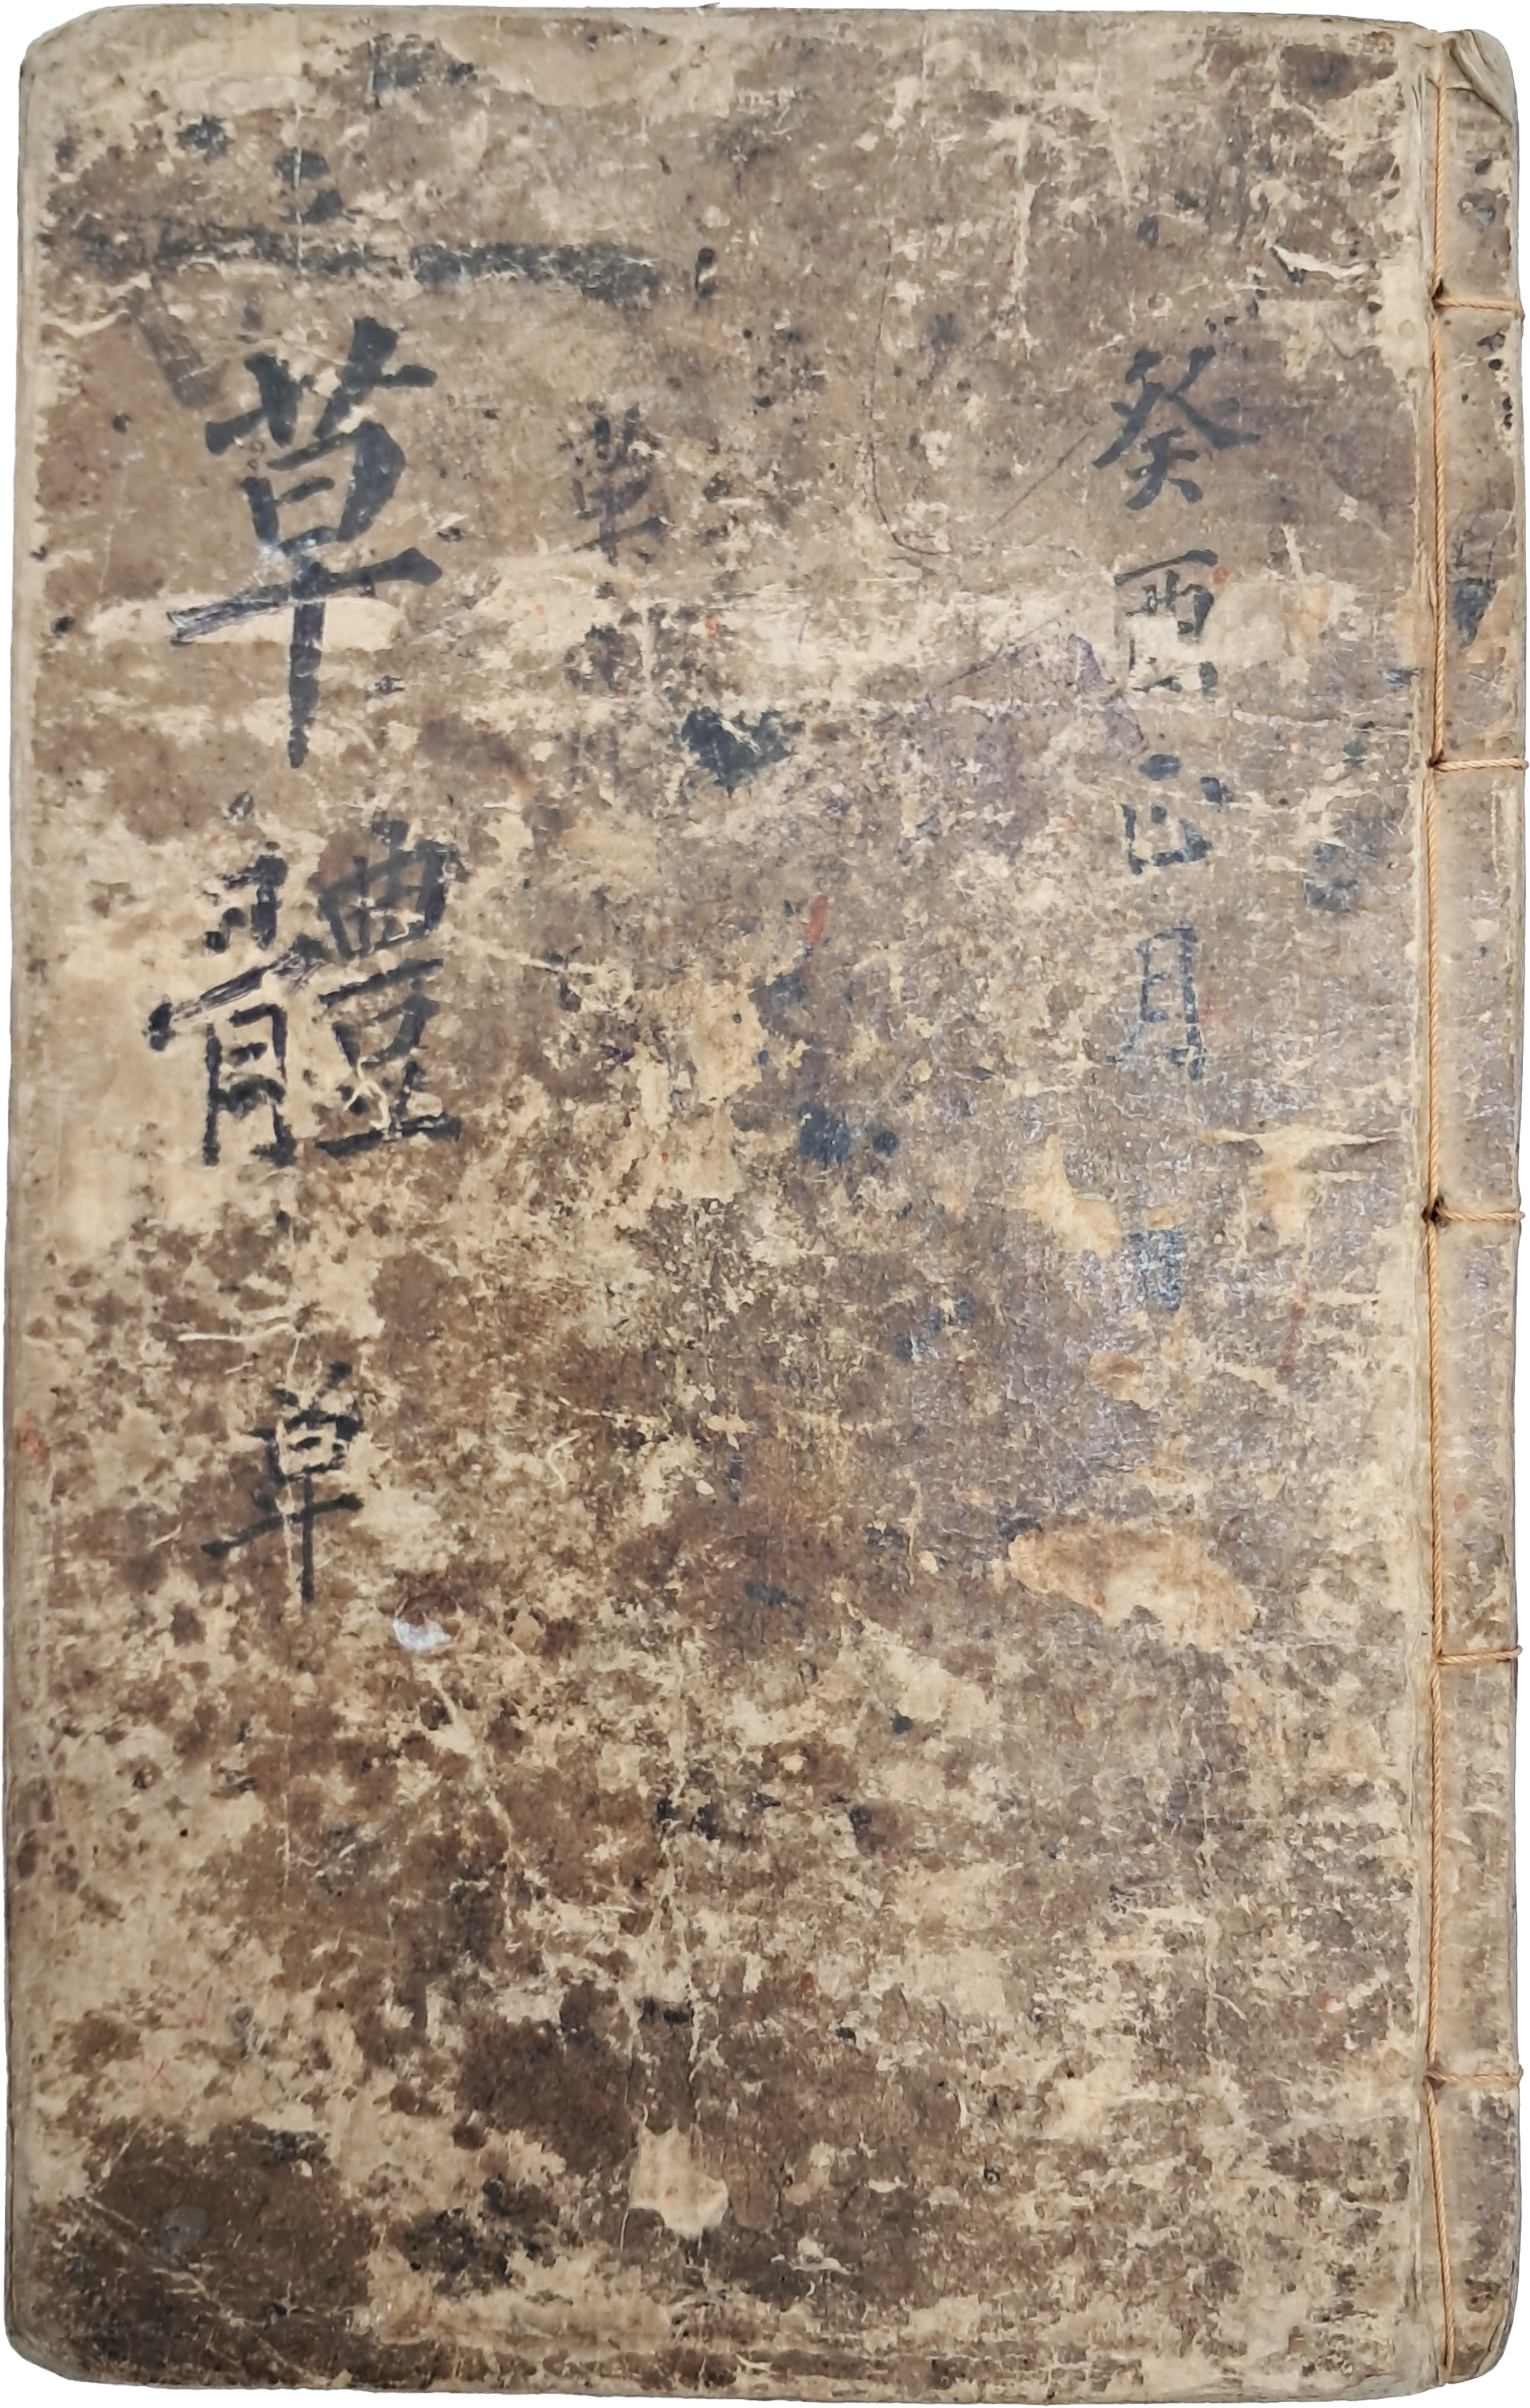 癸酉正月
草體
草